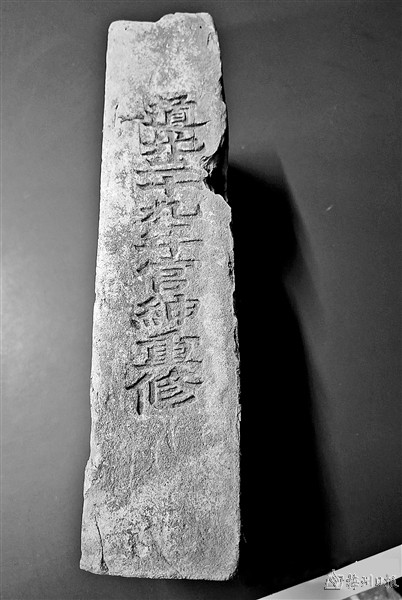 道光二十九年官紳重修
梅州日报